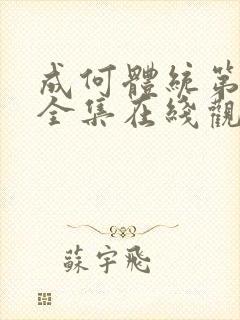 成何體統第
全集在綫觀
蘇宇飛